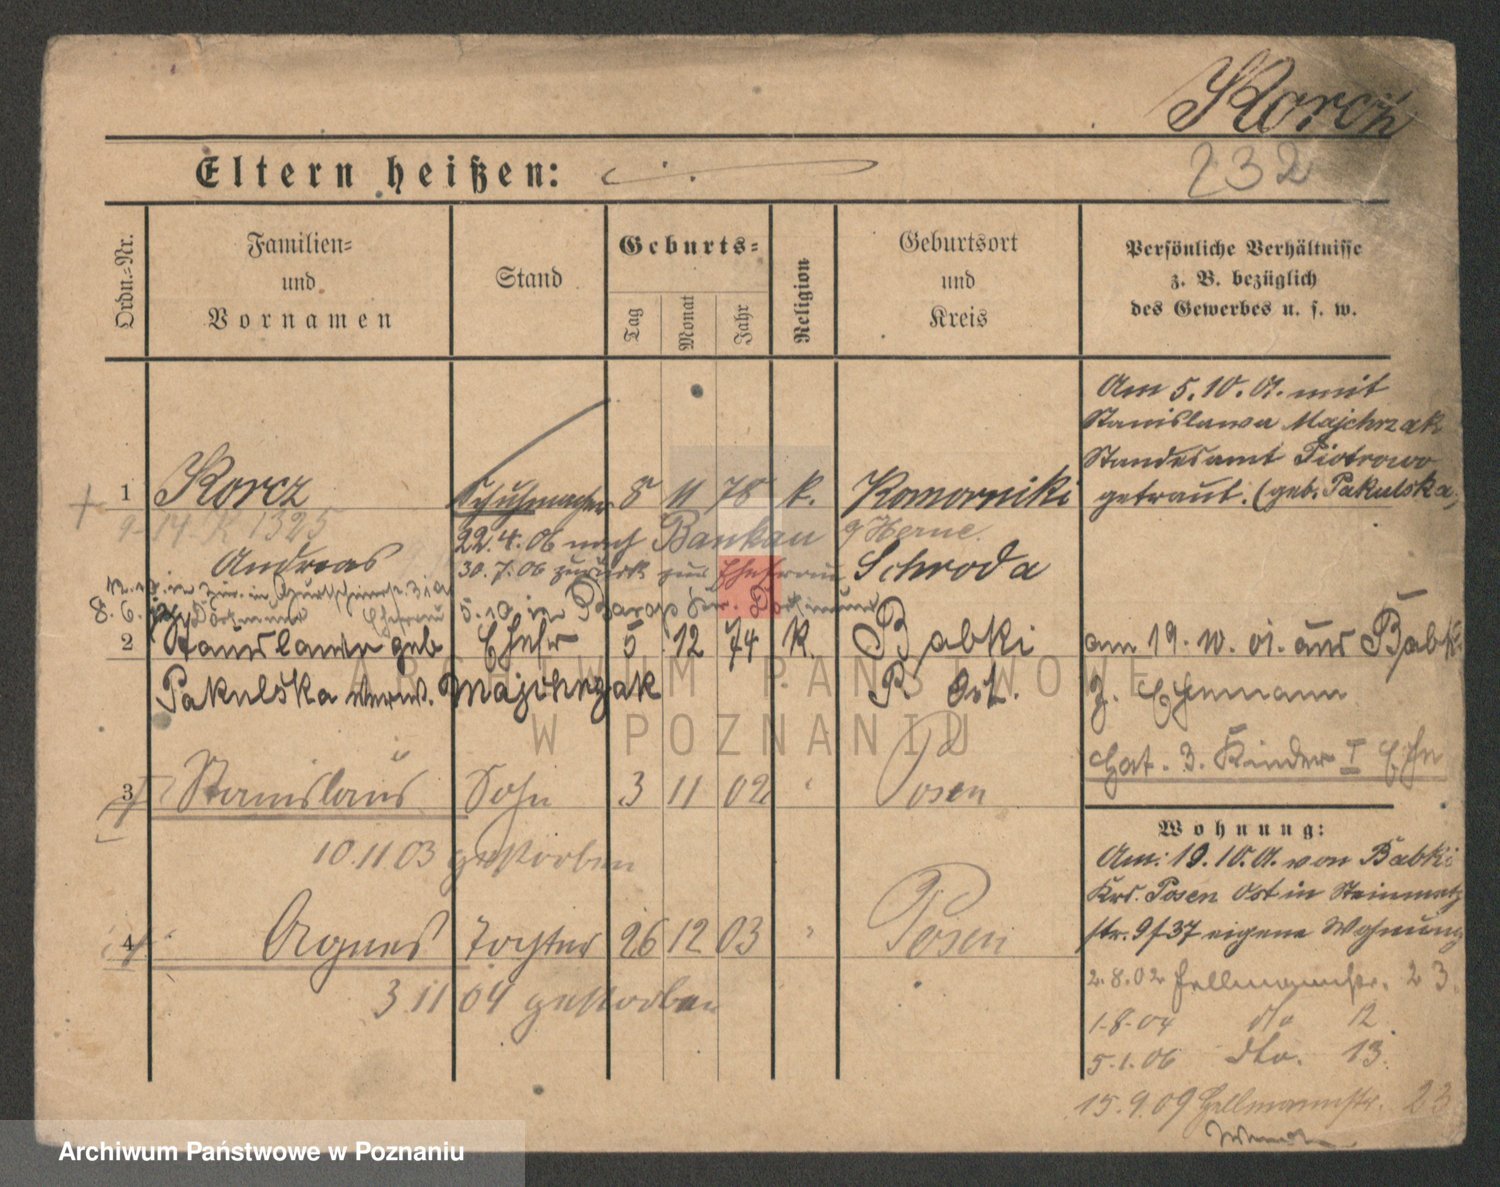 Korcz
232
Eltern heißen:
Ordn.-Nr.
Familien-
und
Vornamen
Stand
Geburts-
Tag
Monat
Jahr
Religion
Geburtsort
und
Kreis
Persönliche Verhältnisse
z. B. bezüglich
des Gewerbes u. s. w.
Am 5.10.01. mit
Stanislawa Majchrzak
Standesamt Piotrowo
getraut. (geb. Pakulska)
1 Korcz Schuhmacher 8 11 78 k. Komorniki
9-14 K 1325
22.4.06 nach Baukau Herne.
Andreas 30.7.06 zurück zur Ehefrau Schroda
8.6. Ehefrau 5.10 in
2 Stanislawa geb Ehefr 5 12 74 k. Babki
Pakulska verw. Majchrzak P. Ost.
am 19.10.01. aus Babki
z. Ehemann
hat 3 Kinder I Ehe
3 Stanislaus Sohn 3 11 02 " Posen
10.11.03 gestorben
4 Agnes Tochter 26 12 03 " Posen
3 11 04 gestorben
Wohnung:
Am 19.10.01. von Babki
Krs. Posen Ost in Steinmetz
str. 9/37 eigene Wohnung
2.8.02 Hellmannstr. 23.
1-8-04 dto 12
5.1.06 dto. 13.
15.9.09 Hellmannstr. 23
ARCHIWUM PAŃSTWOWE
W POZNANIU
Archiwum Państwowe w Poznaniu